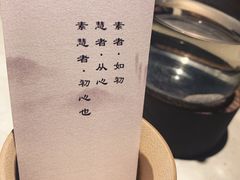 素者·如初
慧者·从心
素慧者·初心也